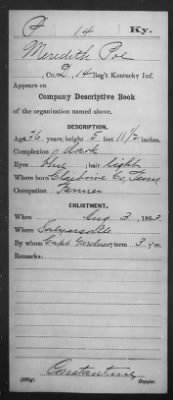 P 14 Ky.
Meredith Poe
, Co. 2, 14 Reg't Kentucky Inf.
Appears on
Company Descriptive Book
of the organization named above.
DESCRIPTION.
Age 26 years; height 5 feet 11 1/2 inches.
Complexion Dark
Eyes blue; hair light
Where born Claiborne Co, Tenn
Occupation Farmer
ENLISTMENT.
When Aug 3, 1863.
Where Salyersville
By whom Capt Gardner; term 3 y'rs.
Remarks:
Constantine
Copyist.